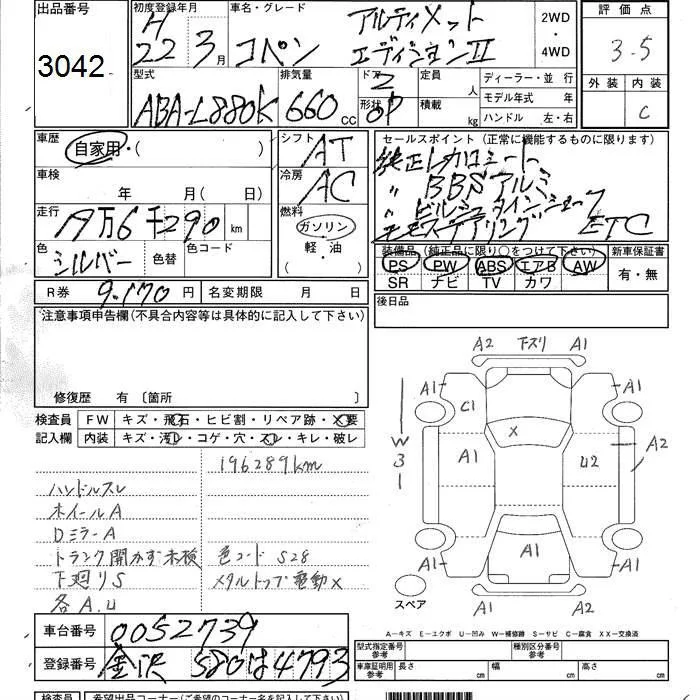 出品番号
3042
初度登録年月
H
22 3月
車名・グレード
コペン
アルティメット
エディションⅡ
2WD
・
4WD
評価点
3.5
外装 内装
C
型式
ABA-L880K
排気量
660 cc
ドア
2
形状
OP
定員
人
積載
kg
ディーラー・並行
モデル年式 年
ハンドル 左・右
車歴
自家用・( )
シフト
AT
セールスポイント (正常に機能するものに限ります)
純正レカロシート
〃 BBSアルミ
〃 ビルシュタインショック
ETC
車検
年 月( 日)
冷房
AC
走行
万6千290 km
燃料
ガソリン
・
軽・油
色
シルバー
色替
色コード
装備品 (純正品に限り○をつけて下さい)
PS PW ABS エアB AW
SR ナビ TV カワ
新車保証書
有・無
R券 9.170円
名変期限 月 日
後日品
注意事項申告欄(不具合内容等は具体的に記入して下さい)
修復歴 有 〔箇所 〕
検査員
記入欄
FW キズ・飛石・ヒビ割・リペア跡・X要
内装 キズ・汚レ・コゲ・穴・スレ・キレ・破レ
196289km
ハンドルスレ
ホイールA
DミラーA
トランク開かず未検
色コード S28
下廻りS
メタルトップ電動×
各A.U
A2 下スリ A1
A1 A1
C1
X
W
3
1
A1
U2
A2
A1
A1 A1
スペア
A2 A1
A-キズ E-エクボ U-凹み W-補修跡 S-サビ C-腐食 XX-交換済
車台番号 0052739
登録番号 金沢 580は4793
型式指定番号
参考
種別区分番号
参考
車庫証明用
参考
長さ cm 幅 cm 高さ cm
検査員
希望出品コーナー(ご希望のコーナー名を記入して下さい)